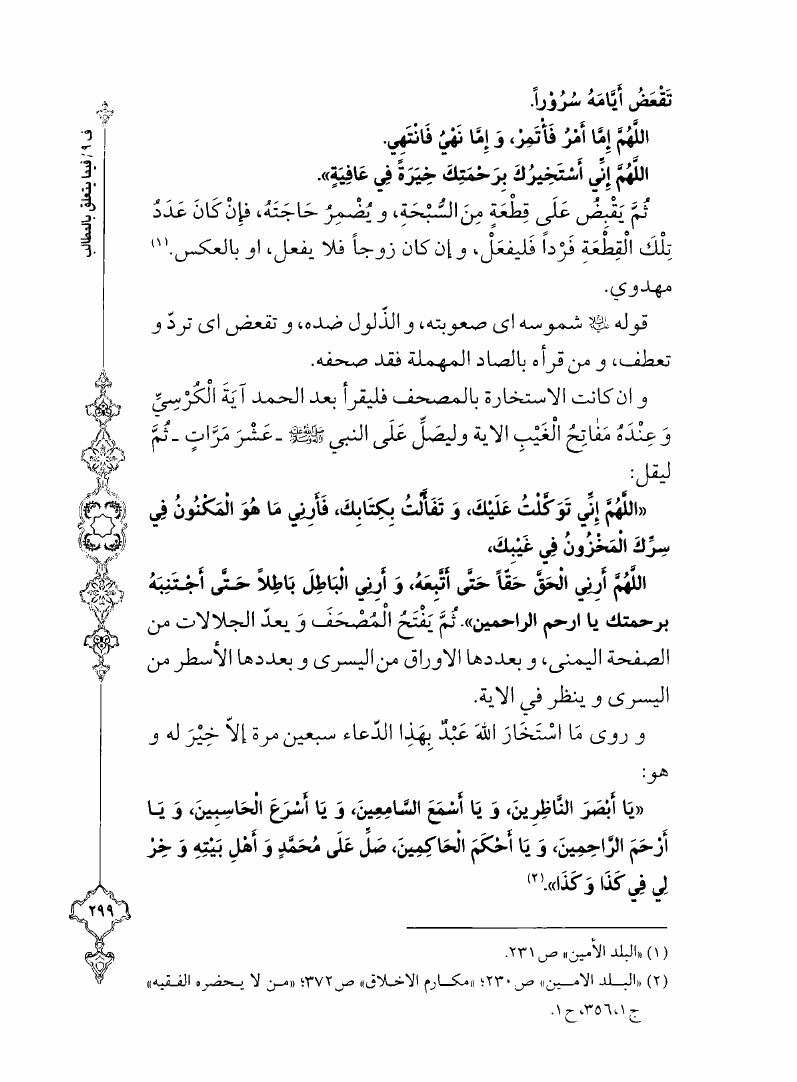 تَقْعَضُ أَيَّامَهُ سُرُوْراً.
اللَّهُمَّ إِمَّا أَمْرُ فَأْتَمِرْ، وَ إِمَّا نَهْيُ فَانْتَهِي.
اللَّهُمَّ إِنِّي أَسْتَخِيرُكَ بِرَحْمَتِكَ خِيَرَةً فِي عَافِيَةٍ».
ثُمَّ يَقْبِضُ عَلَى قِطْعَةٍ مِنَ السُّبْحَةِ، و يُضْمِرُ حَاجَتَهُ، فإِنْ كَانَ عَدَدُ
تِلْكَ الْقِطْعَةِ فَرْداً فَليفعَلْ، و إن كان زوجاً فلا يفعل، او بالعكس.(١)
مهدوي.
قوله ﷺ شموسه اى صعوبته، و الذّلول ضده، و تقعض اى تردّ و
تعطف، و من قرأه بالصاد المهملة فقد صحفه.
و ان كانت الاستخارة بالمصحف فليقرأ بعد الحمد آيَةَ الْكُرْسِيِّ
وَ عِنْدَهُ مَفَاتِحُ الْغَيْبِ الاية وليصَلِّ عَلَى النبي ﷺ ـ عَشْرَ مَرَّاتٍ ـ ثُمَّ
ليقل:
«اللَّهُمَّ إِنِّي تَوَكَّلْتُ عَلَيْكَ، وَ تَفَأَّلْتُ بِكِتَابِكَ، فَأَرِنِي مَا هُوَ الْمَكْنُونُ فِي
سِرِّكَ الْمَخْزُونُ فِي غَيْبِكَ،
اللَّهُمَّ أَرِنِي الْحَقَّ حَقّاً حَتَّى أَتَّبِعَهُ، وَ أَرِنِي الْبَاطِلَ بَاطِلاً حَتَّى أَجْتَنِبَهُ
برحمتك يا ارحم الراحمين». ثُمَّ يَفْتَحُ الْمُصْحَفَ وَ يعدّ الجلالات من
الصفحة اليمنى، و بعددها الاوراق من اليسرى و بعددها الأسطر من
اليسرى و ينظر في الاية.
و روى مَا اسْتَخَارَ اللهَ عَبْدٌ بِهَذِا الدّعاء سبعين مرة إلاّ خِيْرَ له و
هو:
«يَا أَبْصَرَ النَّاظِرِينَ، وَ يَا أَسْمَعَ السَّامِعِينَ، وَ يَا أَسْرَعَ الْحَاسِبِينَ، وَ يَا
أَرْحَمَ الرَّاحِمِينَ، وَ يَا أَحْكَمَ الْحَاكِمِينَ، صَلِّ عَلَى مُحَمَّدٍ وَ أَهْلِ بَيْتِهِ وَ خِرْ
لِي فِي كَذَا وَ كَذَا».(٢)
(١) «البلد الأمين» ص ٢٣١.
(٢) «البلد الامين» ص ٢٣٠؛ «مكارم الاخلاق» ص ٣٧٢؛ «من لا يحضره الفقيه»
ج ١، ٣٥٦، ح ١.
ف ٩ / فيما يتعلق بالمطالب
٢٩٩